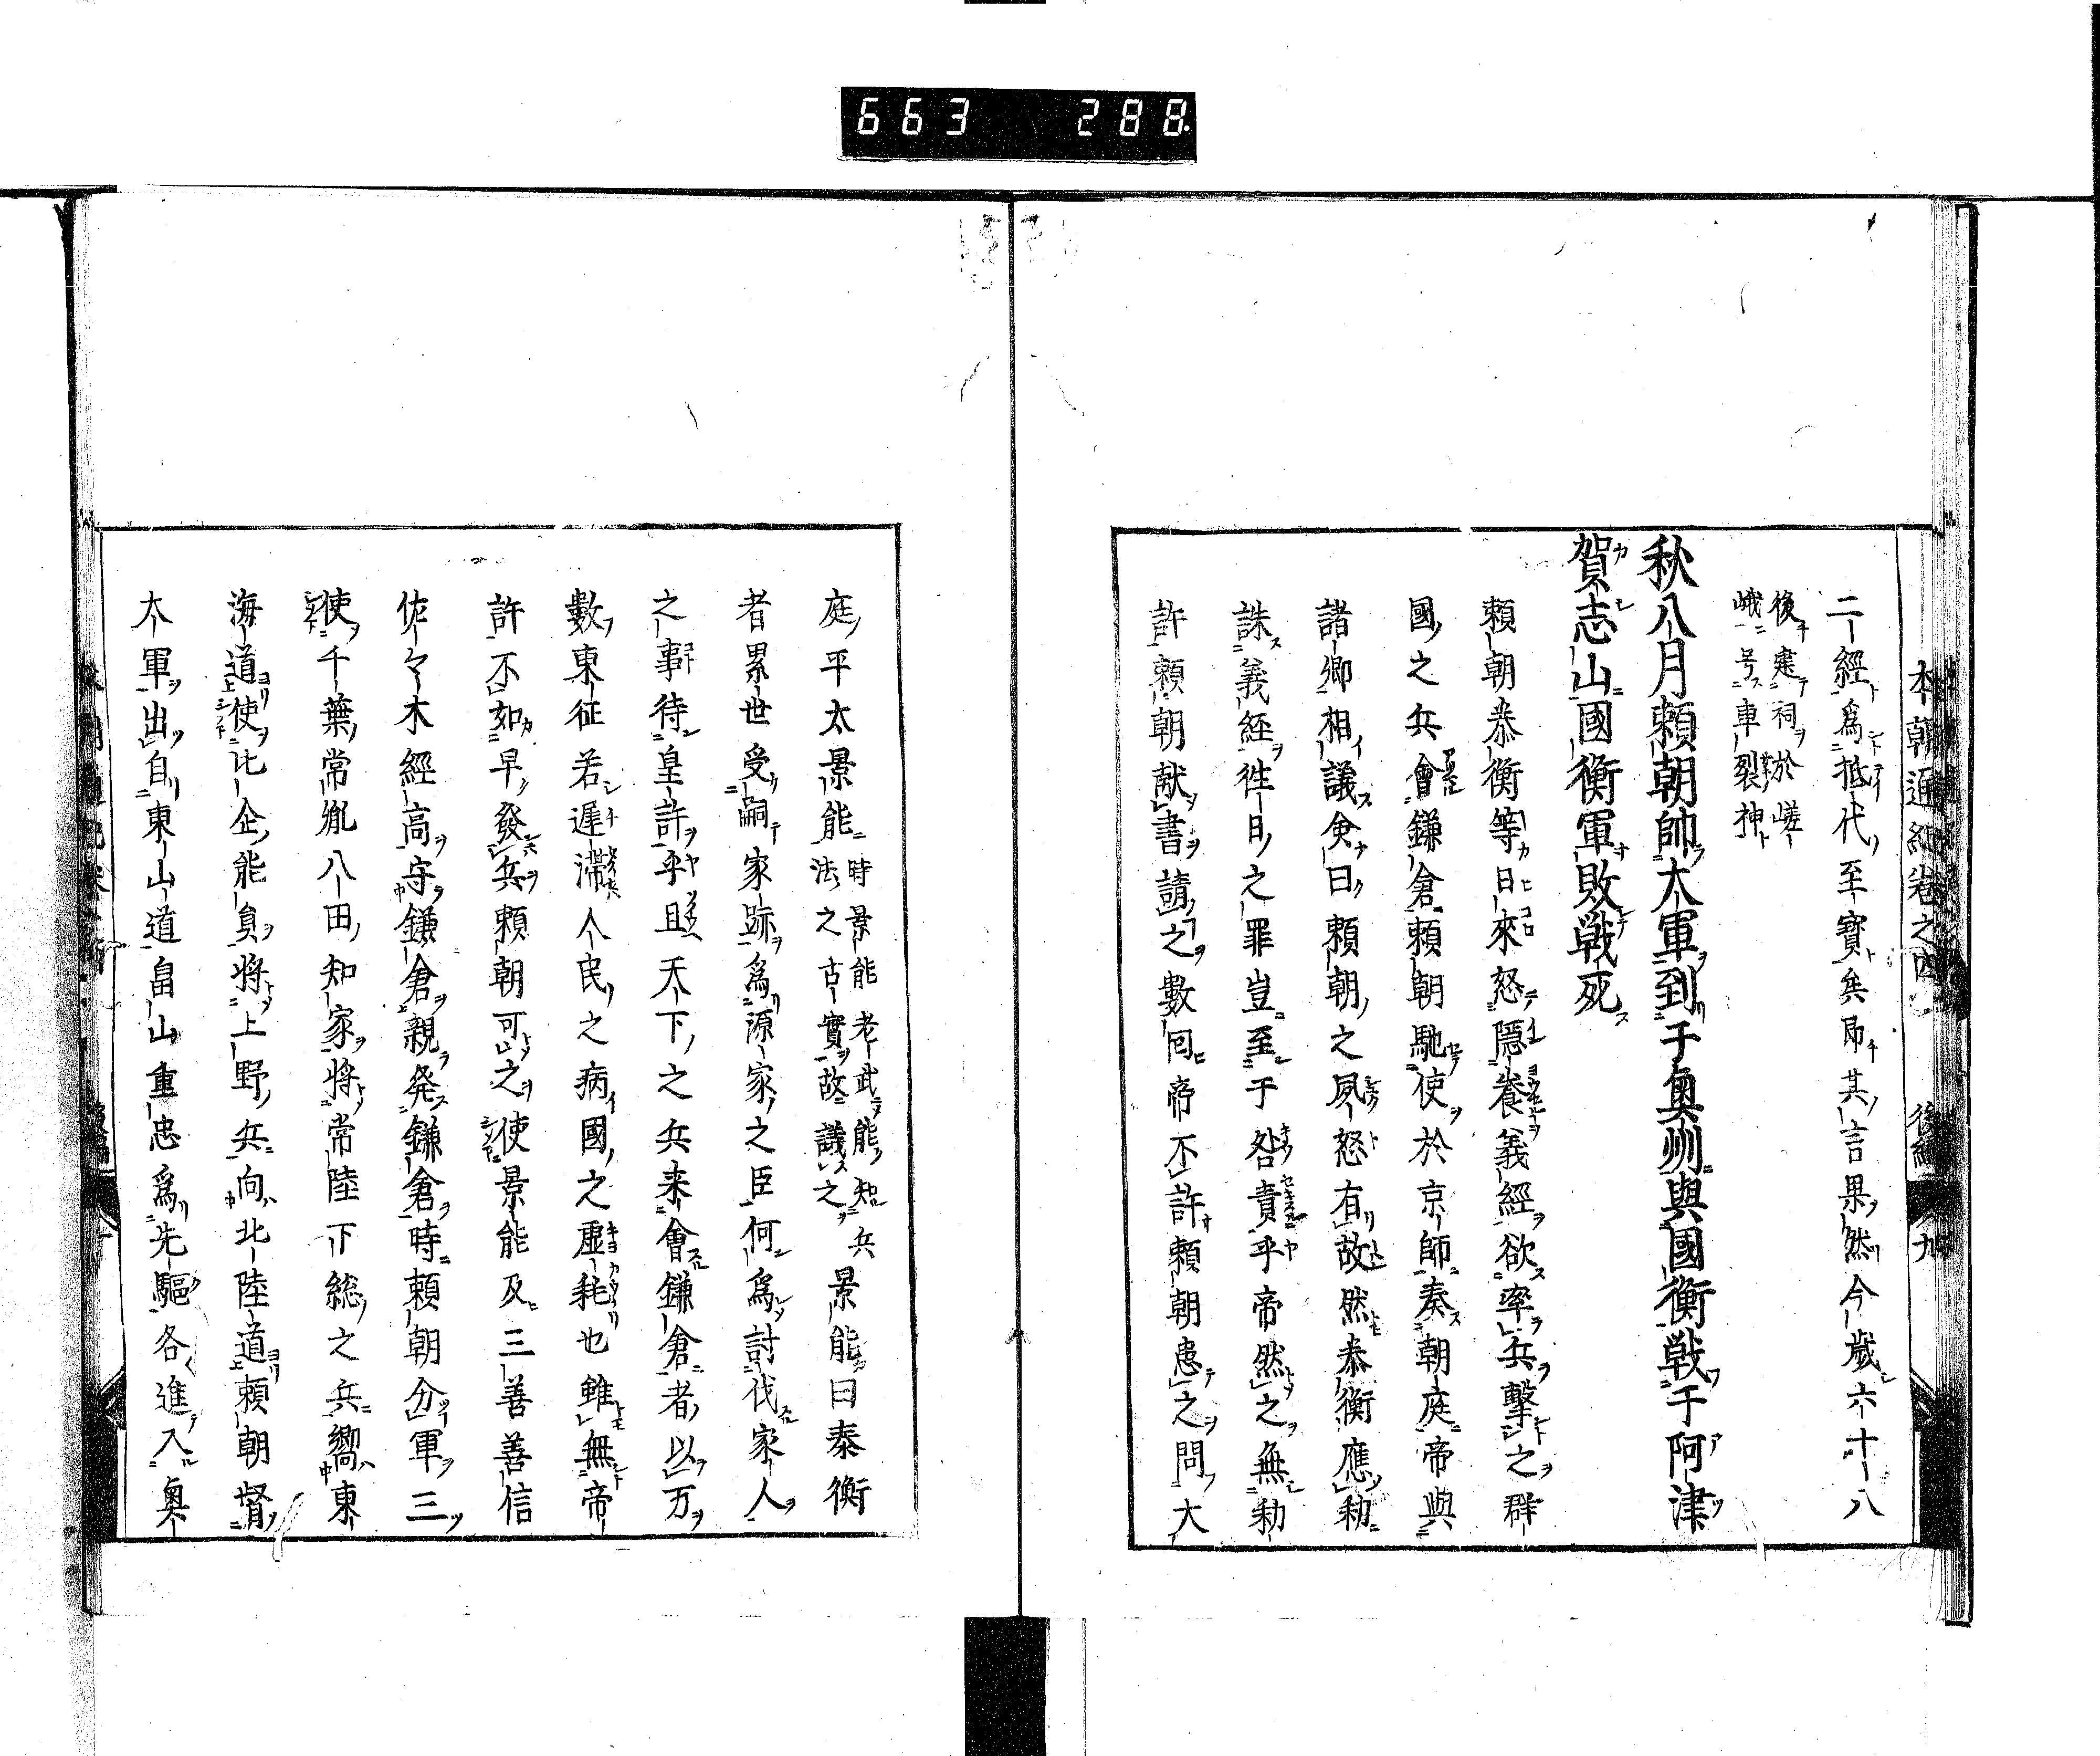 663 288
本朝通紀卷之四 後編 九
二經爲抵代至寶矣帝其言果然今歲六十八
後建祠於嵯
峨号車裂神
秋八月頼朝帥大軍到于奥州與國衡戦于阿津
賀志山國衡軍敗戦死
頼朝恭衡等日來怒隱養義經欲率兵撃之群
國之兵會鎌倉頼朝馳使於京師奏朝庭帝與
諸卿相議僉曰頼朝之夙怒有故然恭衡應勅
誅義經徃日之罪豈至于咎責乎帝然之無勅
許頼朝献書請之數回帝不許頼朝患之問大
庭平太景能
時景能老武能知兵
法之古實故議之
景能曰泰衡
者累世受嗣家跡爲源家之臣何爲討伐家人
之事待皇許乎且天下之兵来會鎌倉者以万
數東征若遲滯人民之病國之虚耗也雖無帝
許不如早發兵頼朝可之使景能及三善善信
佐々木經高守鎌倉親発鎌倉時頼朝分軍三
使千葉常胤八田知家將常陸下総之兵嚮東
海道使比企能員將上野兵向北陸道頼朝督
大軍出自東山道畠山重忠爲先驅各進入奥